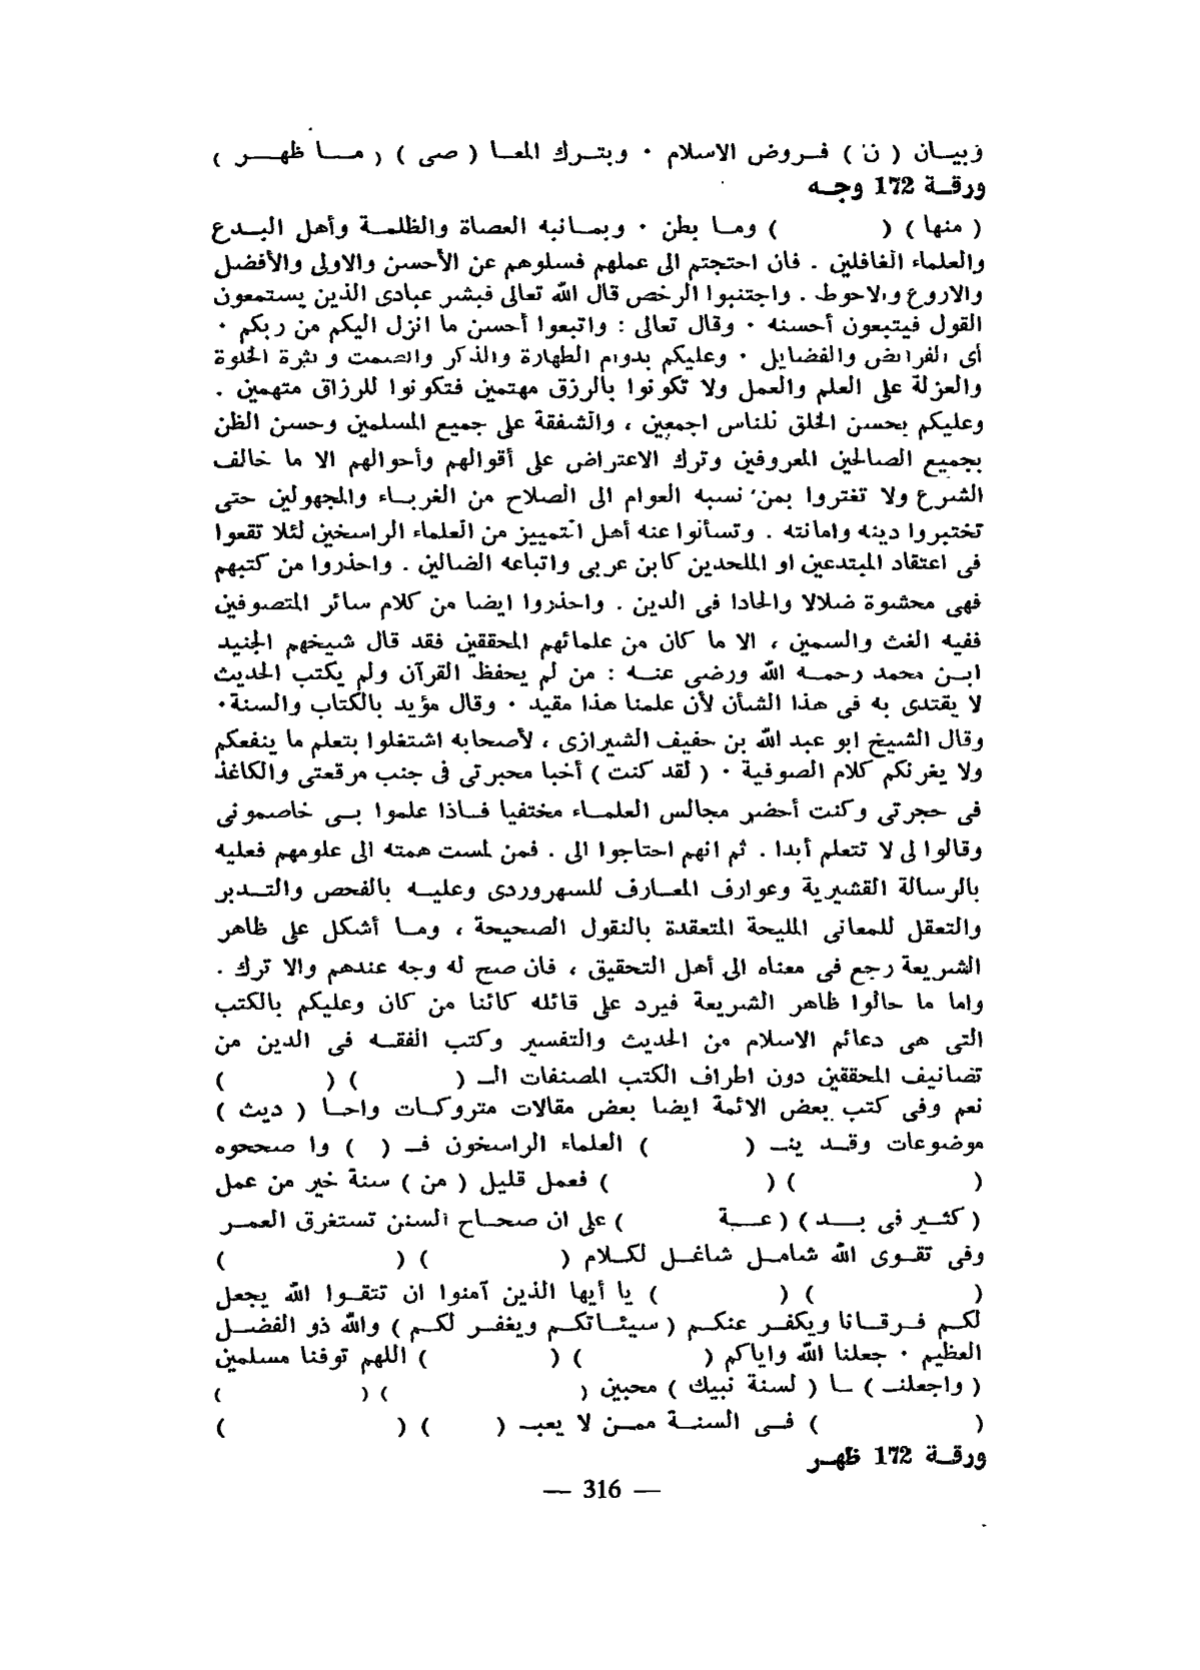 وبيـان ( ن ) فـروض الاسلام ٠ وبتـرك المعـا ( صى ) ( مــا ظهــر )
ورقـة 172 وجـه
( منها ) (          ) ومـا بطن ٠ وبمـانبه العصاة والظلمـة وأهل البـدع
والعلماء الغافلين . فان احتجتم الى عملهم فسلوهم عن الأحسن والاولى والأفضل
والاروع والاحوط . واجتنبوا الرخص قال الله تعالى فبشر عبادى الذين يستمعون
القول فيتبعون أحسنه ٠ وقال تعالى : واتبعوا أحسن ما انزل اليكم من ربكم ٠
أى الفرائض والفضايل ٠ وعليكم بدوام الطهارة والذكر والصمت و نثرة الخلوة
والعزلة على العلم والعمل ولا تكونوا بالرزق مهتمين فتكونوا للرزاق متهمين .
وعليكم بحسن الخلق للناس اجمعين ، والشفقة على جميع المسلمين وحسن الظن
بجميع الصالحين المعروفين وترك الاعتراض على أقوالهم وأحوالهم الا ما خالف
الشرع ولا تغتروا بمن نسبه العوام الى الصلاح من الغربـاء والمجهولين حتى
تختبروا دينه وامانته . وتسألوا عنه أهل التمييز من العلماء الراسخين لئلا تقعوا
فى اعتقاد المبتدعين او الملحدين كابن عربى واتباعه الضالين . واحذروا من كتبهم
فهى محشوة ضلالا والحادا فى الدين . واحذروا ايضا من كلام سائر المتصوفين
ففيه الغث والسمين ، الا ما كان من علمائهم المحققين فقد قال شيخهم الجنيد
ابـن محمد رحمـه الله ورضى عنـه : من لم يحفظ القرآن ولم يكتب الحديث
لا يقتدى به فى هذا الشأن لأن علمنا هذا مقيد ٠ وقال مؤيد بالكتاب والسنة٠
وقال الشيخ ابو عبد الله بن حفيف الشيرازى ، لأصحابه اشتغلوا بتعلم ما ينفعكم
ولا يغرنكم كلام الصوفية ٠ ( لقد كنت ) أخبا محبرتى فى جنب مرقعتى والكاغذ
فى حجرتى وكنت أحضر مجالس العلمـاء مختفيا فـاذا علموا بـى خاصمونى
وقالوا لى لا تتعلم أبدا . ثم انهم احتاجوا الى . فمن لمست همته الى علومهم فعليه
بالرسالة القشيرية وعوارف المعـارف للسهروردى وعليـه بالفحص والتـدبر
والتعقل للمعانى المليحة المتعقدة بالنقول الصحيحة ، ومـا أشكل على ظاهر
الشريعة رجع فى معناه الى أهل التحقيق ، فان صح له وجه عندهم والا ترك .
واما ما حالوا ظاهر الشريعة فيرد على قائله كائنا من كان وعليكم بالكتب
التى هى دعائم الاسلام من الحديث والتفسير وكتب الفقـه فى الدين من
تصانيف المحققين دون اطراف الكتب المصنفات الـ (          ) (          )
نعم وفى كتب بعض الائمة ايضا بعض مقالات متروكـات واحـا ( ديث )
موضوعات وقـد ينـ (          ) العلماء الراسخون فـ (   ) وا صححوه
(                    ) (                    ) فعمل قليل ( من ) سنة خير من عمل
( كثـير فى بــد ) ( عــة          ) على ان صحـاح السنن تستغرق العمـر
وفى تقـوى الله شامـل شاغـل لكـلام (          ) (                    )
(                    ) (                    ) يا أيها الذين آمنوا ان تتقـوا الله يجعل
لكـم فـرقـانا ويكفـر عنكـم ( سيئـاتكـم ويغفـر لكـم ) والله ذو الفضـل
العظيم ٠ جعلنا الله واياكم (          ) (          ) اللهم توفنا مسلمين
( واجعلنـ ) ـا ( لسنة نبيك ) محبين (                    ) (          )
(                    ) فـى السنـة ممـن لا يعبـ (     ) (                    )
ورقـة 172 ظهـر
— 316 —